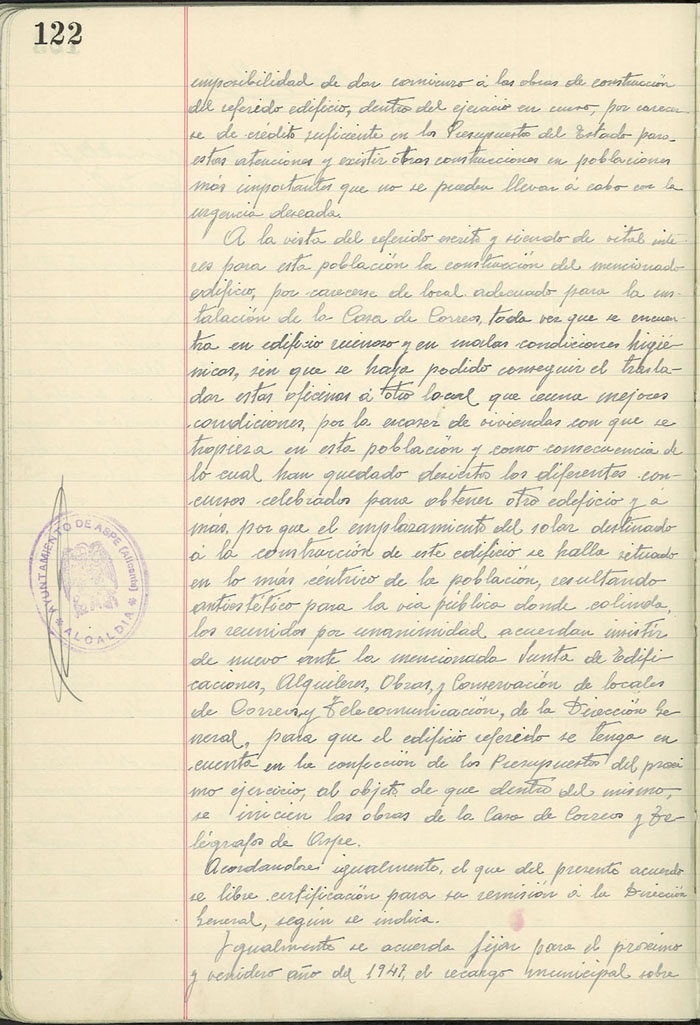 122
imposibilidad de dar comienzo á las obras de construcción
del referido edificio, dentro del ejercicio en curso, por carecer-
se de crédito suficiente en los Presupuesto del Estado para
estas atenciones y existir otras construcciones en poblaciones
más importantes que no se pueden llevar á cabo con la
urgencia deseada.
A la vista del referido escrito y siendo de vital inte-
res para esta población la construcción del mencionado
edificio, por carecerse de local adecuado para la ins-
talación de la Casa de Correos, toda vez que se encuen-
tra en edificio ruinoso y en malas condiciones higié-
nicas, sin que se haya podido conseguir el trasla-
dar estas oficinas á otro local que reuna mejores
condiciones, por la escasez de viviendas con que se
tropieza en esta población y como consecuencia de
lo cual han quedado desiertos los diferentes con-
cursos celebrados para obtener otro edificio y a
más, por que el emplazamiento del solar destinado
á la construcción de este edificio se halla situado
en lo más céntrico de la población, resultando
antiestético para la via pública donde colinda,
los reunidos por unanimidad acuerdan insistir
de nuevo ante la mencionada Junta de Edifi-
caciones, Alquileres, Obras, y Conservación de locales
de Correos y Telecomunicación, de la Dirección Ge-
neral, para que el edificio referido se tenga en
cuenta en la confección de los Presupuestos del proxi-
mo ejercicio, al objeto de que dentro del mismo,
se inicien las obras de la Casa de Correos y Te-
légrafos de Aspe.
Acordandose igualmente, el que del presente acuerdo
se libre certificación para su remisión á la Dirección
General, según se indica.
Igualmente se acuerda fijar para el proximo
y venidero año de 1947, el recargo municipal sobre
AYUNTAMIENTO DE ASPE (Alicante)
ALCALDIA